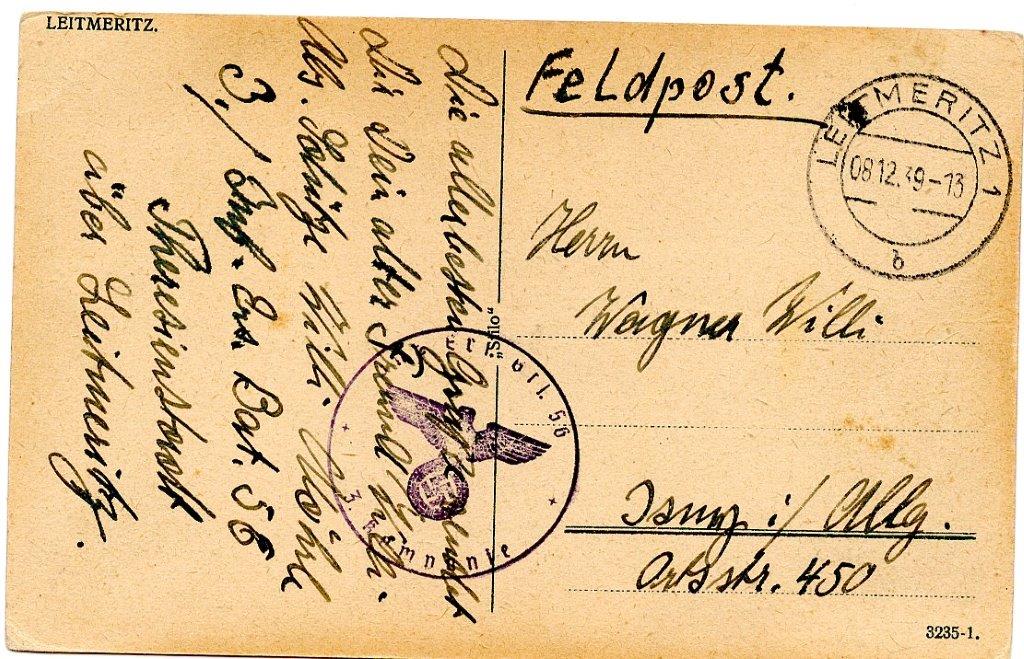 LEITMERITZ.
Die allerbesten Grüße sendet
Dir Dein alter Freund Willi.
Abs. Willi
3./ Inf. Ers. Bat. 56
Theresienstadt
über Leitmeritz.
Feldpost.
LEITMERITZ 1
08.12.39-13
b
Herrn
Wagner Willi
Isny i/ Allg.
450
"Stilo"
56
3. Kompanie
3235-1.